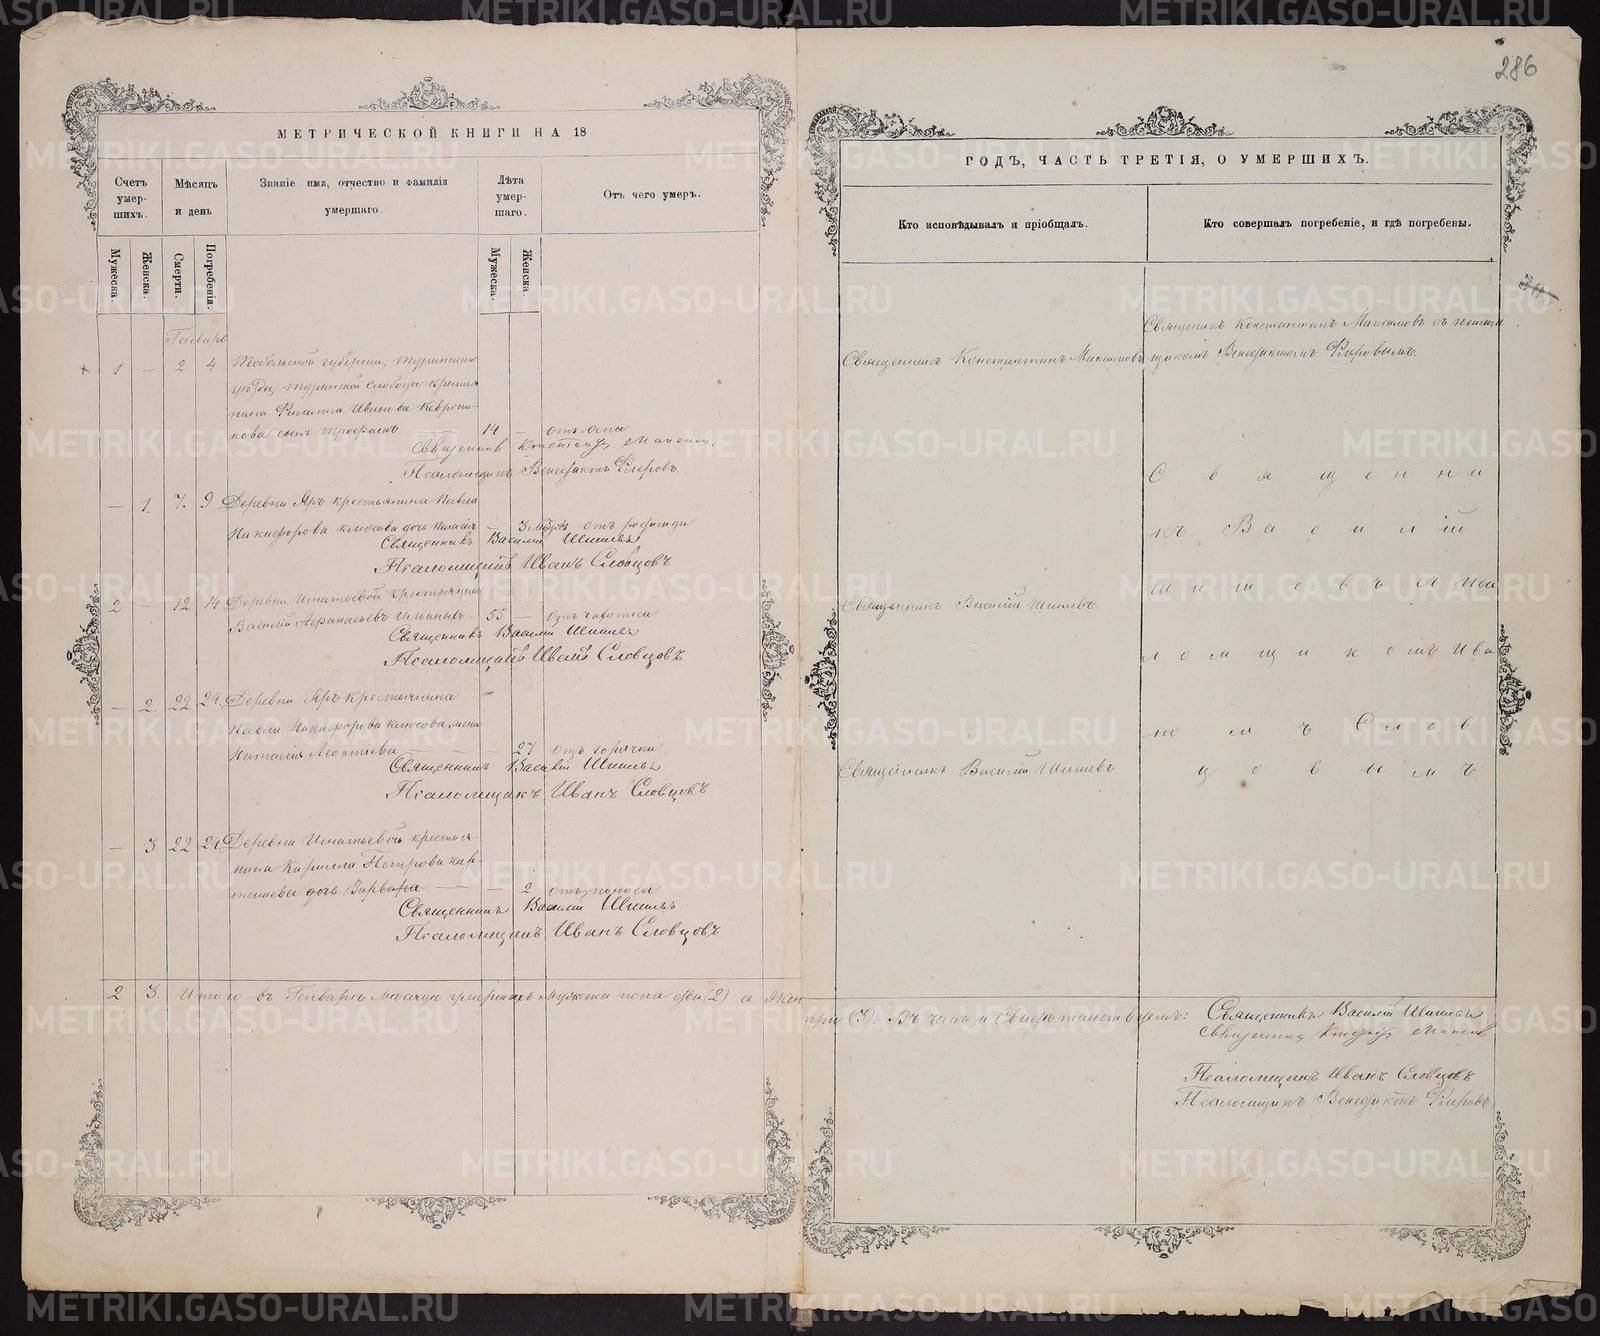 286
МЕТРИЧЕСКОЙ КНИГИ НА 18
Счетъ умер-шихъ.
Мѣсяцъ и день
Званіе имя, отчество и фамилія умершаго.
Лѣта умер-шаго.
Отъ чего умеръ.
Мужеска.
Женска.
Смерти.
Погребенія.
Мужеска.
Женска.
Генварь
1 — 2 4 Тобольской губерніи, Туринскаго
уѣзда, Туринской Слободы крестья
нина Филиппа Иванова
кова сынъ Трофимъ 14 — отъ оспы
Священник
Псаломщикъ Венедиктъ Флеровъ.
— 1. 7. 9 Деревни Яръ крестьянина Павла
Никифорова дочь — 3 отъ
Священникъ Василій Шишевъ
Псаломщикъ Иванъ Словцовъ
2 — 12 14 Деревни Игнатьевой крестьянинъ
Василій Афанасьевъ — 55 — Отъ чахотки
Священникъ Василій Шишевъ
Псаломщикъ Иванъ Словцовъ
— 2. 22 24. Деревни Яръ крестьянина
Павла Никифорова жена
Наталія Леонтиева — — — 27 отъ горячки
Священникъ Василій Шишевъ
Псаломщикъ Иванъ Словцовъ
— 3 22 24 Деревни Игнатьевой крестья-
нина Кирилла Петрова
дочь Варвара — — 2 отъ поноса
Священникъ Василій Шишевъ.
Псаломщикъ Иванъ Словцовъ
2 3. Итого въ Генварѣ мѣсяцѣ умершихъ мужеска пола два (2) а жен
ГОДЪ, ЧАСТЬ ТРЕТІЯ, О УМЕРШИХЪ.
Кто исповѣдывалъ и пріобщалъ.
Кто совершалъ погребеніе, и гдѣ погребены.
Священикъ Константинъ Максимовъ съ
Священникъ Константинъ Максимовъ щикомъ Венедиктомъ Флеровымъ.
Священни
къ Василій
Шишевъ съ Пса
Священникъ Василій Шишевъ.
ломщикомъ Ива
номъ Слов
Священникъ Василій Шишевъ.
цовымъ
три (3). Въ чемъ и Свидѣтельствуемъ: Священникъ Василій Шишевъ
Священник
Псаломщикъ Иванъ Словцовъ
Псаломщикъ Венедиктъ Флеровъ.
METRIKI.GASO-URAL.RU